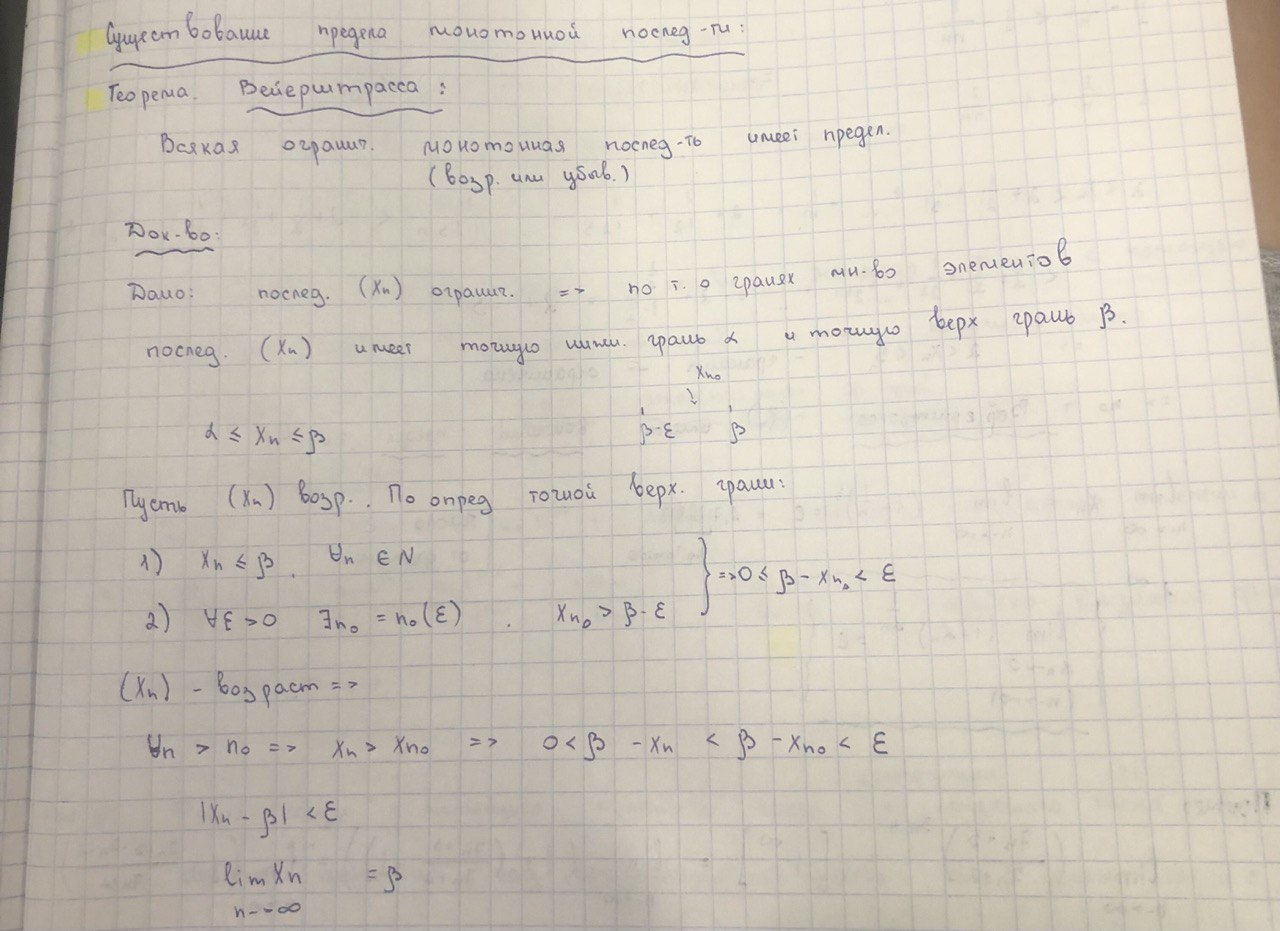 Существование предела монотонной послед-ти:
Теорема. Вейерштрасса:
Всякая огранич. монотонная послед-ть имеет предел.
(возр. или убыв.)
Док-во:
Дано: послед. (Xn) огранич. => по т. о гранях мн-во элементов
послед. (Xn) имеет точную нижн. грань α и точную верх грань β.
Xn₀
↓
α ≤ Xn ≤ β
β-ε β
Пусть (Xn) возр.. По опред точной верх. грани:
1) Xn ≤ β, ∀n ∈ N
2) ∀ε >0 ∃n₀ = n₀(ε) . Xn₀ > β-ε
} => 0 ≤ β - Xn₀ < ε
(Xn) - возраст =>
∀n > n₀ => Xn > Xn₀ => 0 < β - Xn < β - Xn₀ < ε
|Xn - β| < ε
lim Xn = β
n→∞